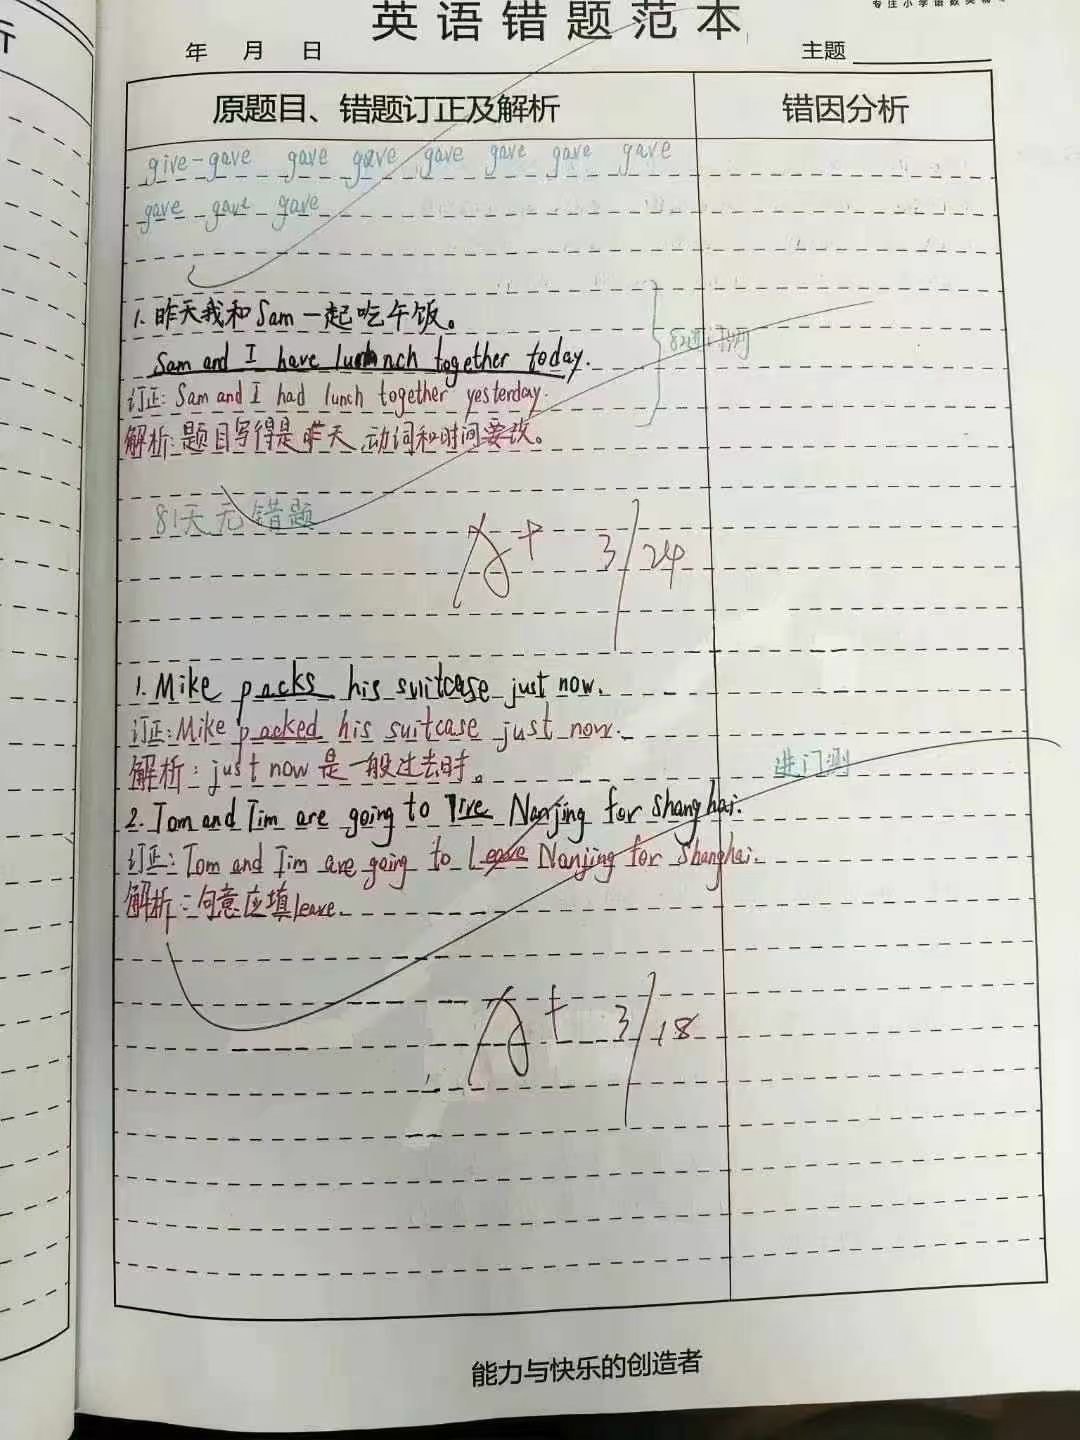 析
专注小学语数英
英语错题范本
年 月 日 主题
原题目、错题订正及解析 错因分析
give-gave gave gave gave gave gave gave
gave gave gave
1. 昨天我和Sam一起吃午饭。
Sam and I have lunch together today.
订正: Sam and I had lunch together yesterday.
解析:题目写得是昨天,动词和时间要改。
81天无错题
A+ 3/24
1. Mike packs his suitcase just now.
订正: Mike packed his suitcase just now.
解析:just now是一般过去时。
进门测
2. Tom and Tim are going to live Nanjing for Shanghai.
订正: Tom and Tim are going to Leave Nanjing for Shanghai.
解析:句意应填leave.
A+ 3/18
能力与快乐的创造者